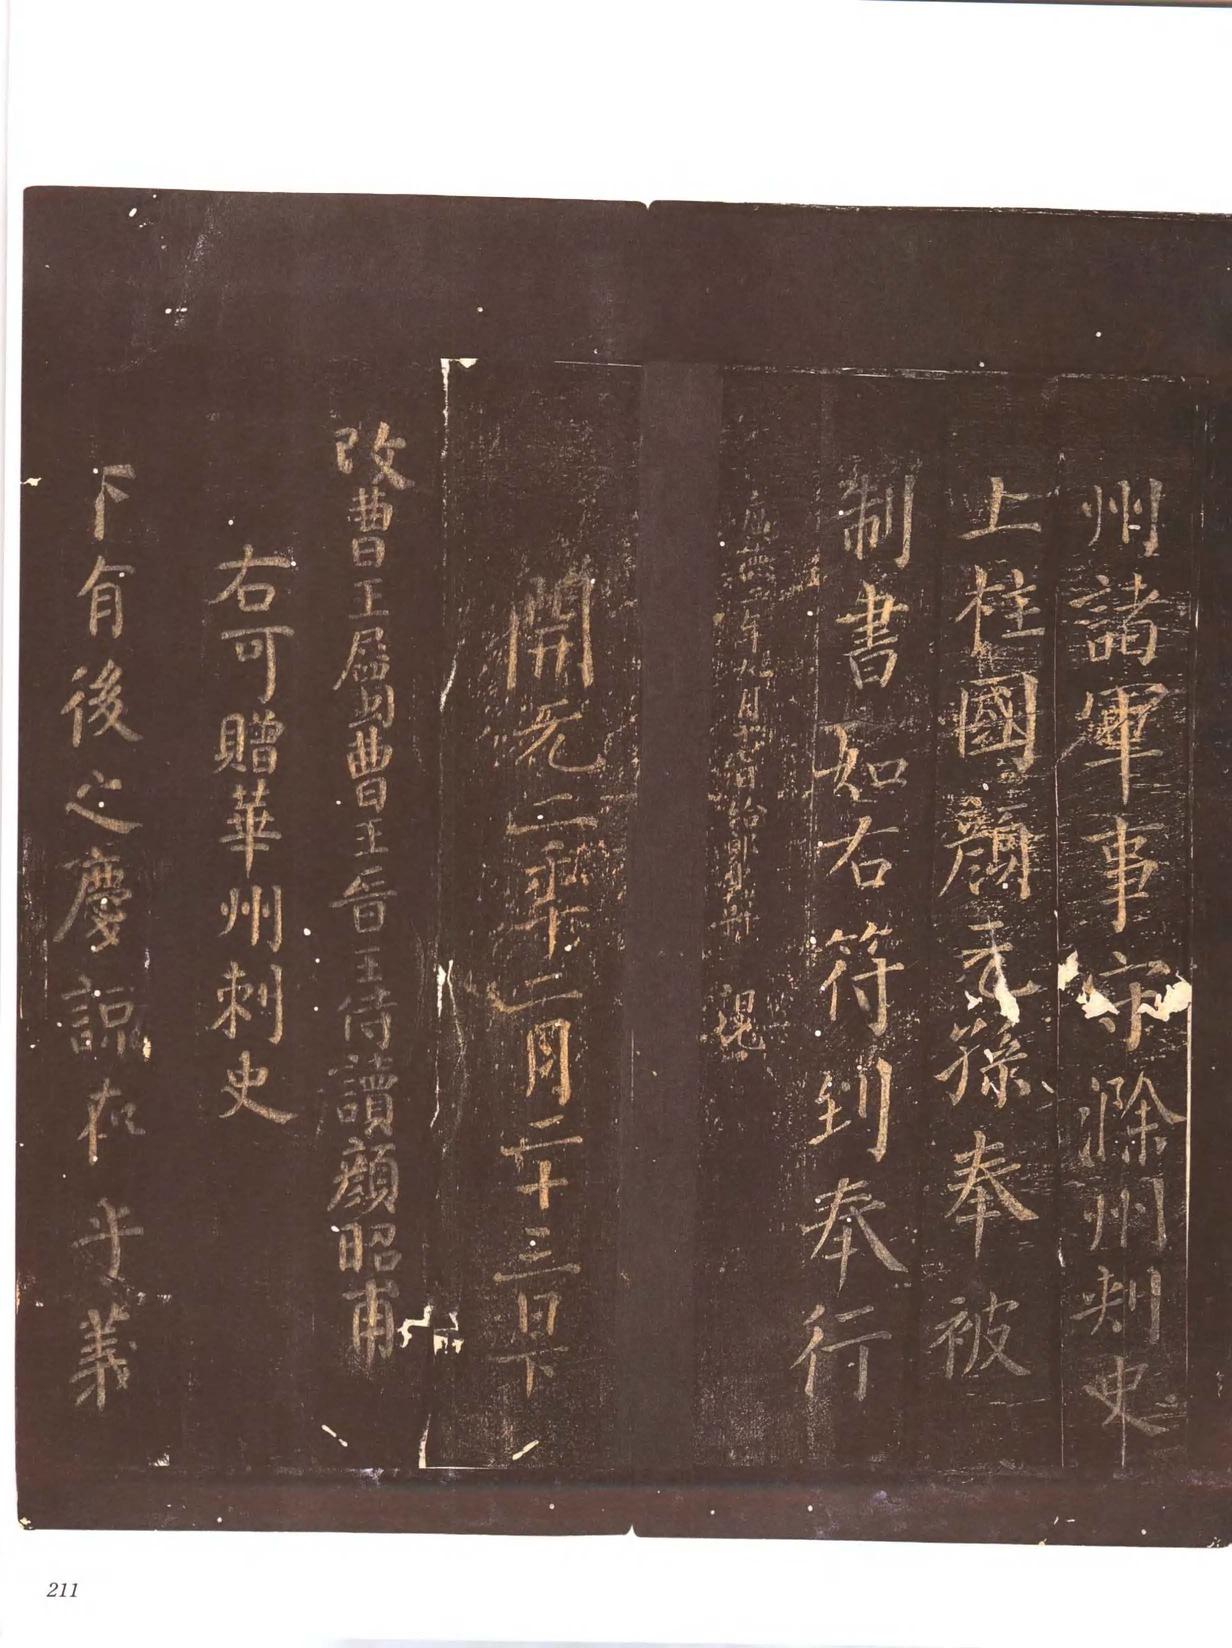 州諸軍事守滁州刺史
上柱國顏元孫奉被
制書如右符到奉行
二年九月 日給
開元二年二月二十三日下
故曹王屬 曹王 王侍讀顏昭甫
右可贈華州刺史
下有後之慶諒在乎義
211